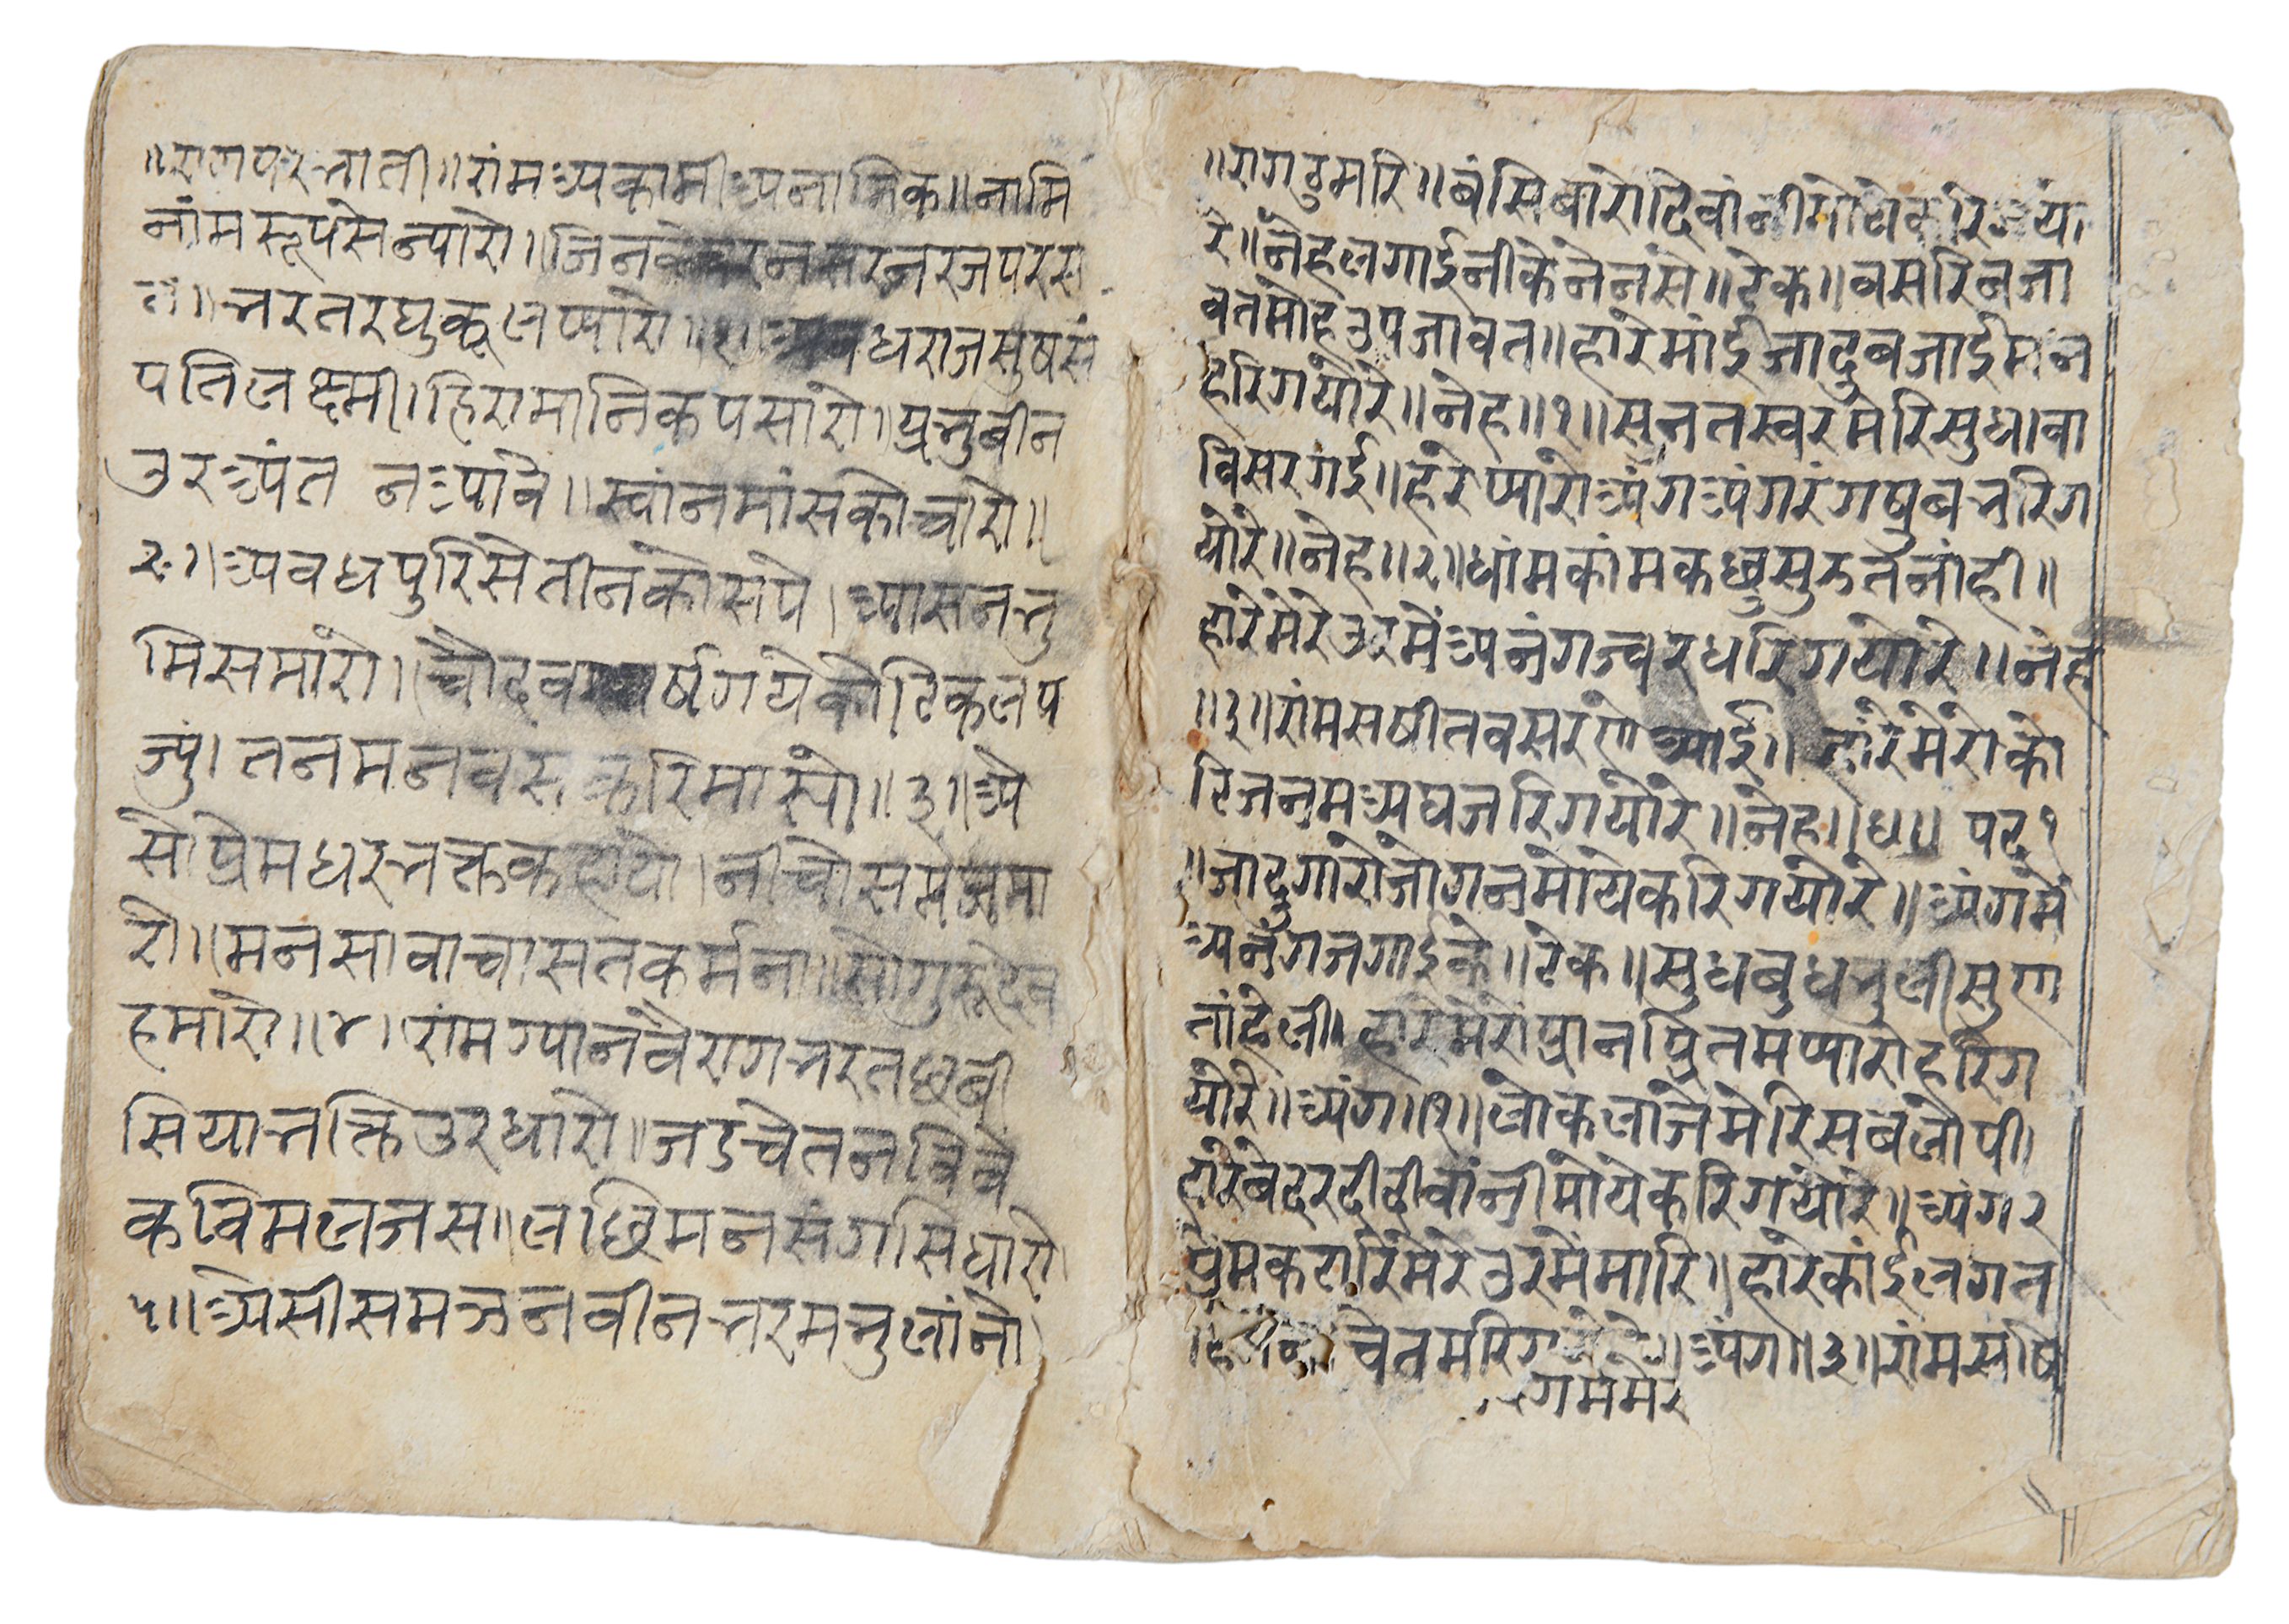 ॥राग परभाती॥रांम अकामी अनामिक॥नामि
नांम रूप सें न्यारो।जिनके चरन सरन रज परस
त॥भरत रघुकूल प्यारो॥१॥अवध राज सुष सं
पति लक्ष्मी।हिरा मानिक पसारो।प्रभु बीन
उर अंत न आंवे॥स्वांन मांस को चारो॥
२॥अवध पुरि से तीन कोस पे।आसन भु
मि समारो।चौदव वर्ष गये कोटि कलप
ज्युं।तन मन वस करि मास्यो॥३॥अे
सो प्रेम धर भक्त कहायो।नीचो सम
रो॥मनसा वाचा सत कर्मना॥सो गुरूदेव
हमारो॥४।रांम ग्यान वैराग भरत छबी
सिया भक्ति उर धारो॥जड चेतन विवे
क विमल जस॥लछिमन संग सिधारो
५॥अेसी समझन वीन भरम भुलांनो
॥राग ठुमरि॥बंसि बारो दिवांनी मोये करि गयो
रे॥नेह लगाई नीके नेनंसे॥टेक॥बसरि बजा
वत मोह उपजावत॥हारे मांई जादु बजाई मन
हरि गयो रे॥नेह॥१॥सुनत स्वर मेरि सुध वा
विसर गई॥हारे प्यारो अंग अंग रंग षुब भरि ग
योरे॥नेह॥२॥धांम कांम कछु सुझत नांही॥
हारे मेरे उर में अनंग ज्वर धरि गयो रे॥नेह
॥३॥रांमसषी तव सरणे आई॥हारे मेरो को
टि जनम अघ जरि गयो रे॥नेह॥४॥ पद १
॥जादुगारो जोगन मोये करि गयो रे॥अंग में
अनंग जगाई के॥टेक॥सुध बुध भुली सुण
तां हेली॥हारे मेरो प्रान प्रितम प्यारो हरि ग
योरे॥अंग॥१॥लोक लाज मेरि सब लोपी।
हारे बेदरदी दीवांनी मोये करि गयो रे॥अंग२
प्रेम कटारि मेरे उर में मारि॥हारे कांई लगत
चेत मरि गयो रे॥अंग॥३॥रांमसषि
ग मे मेरे